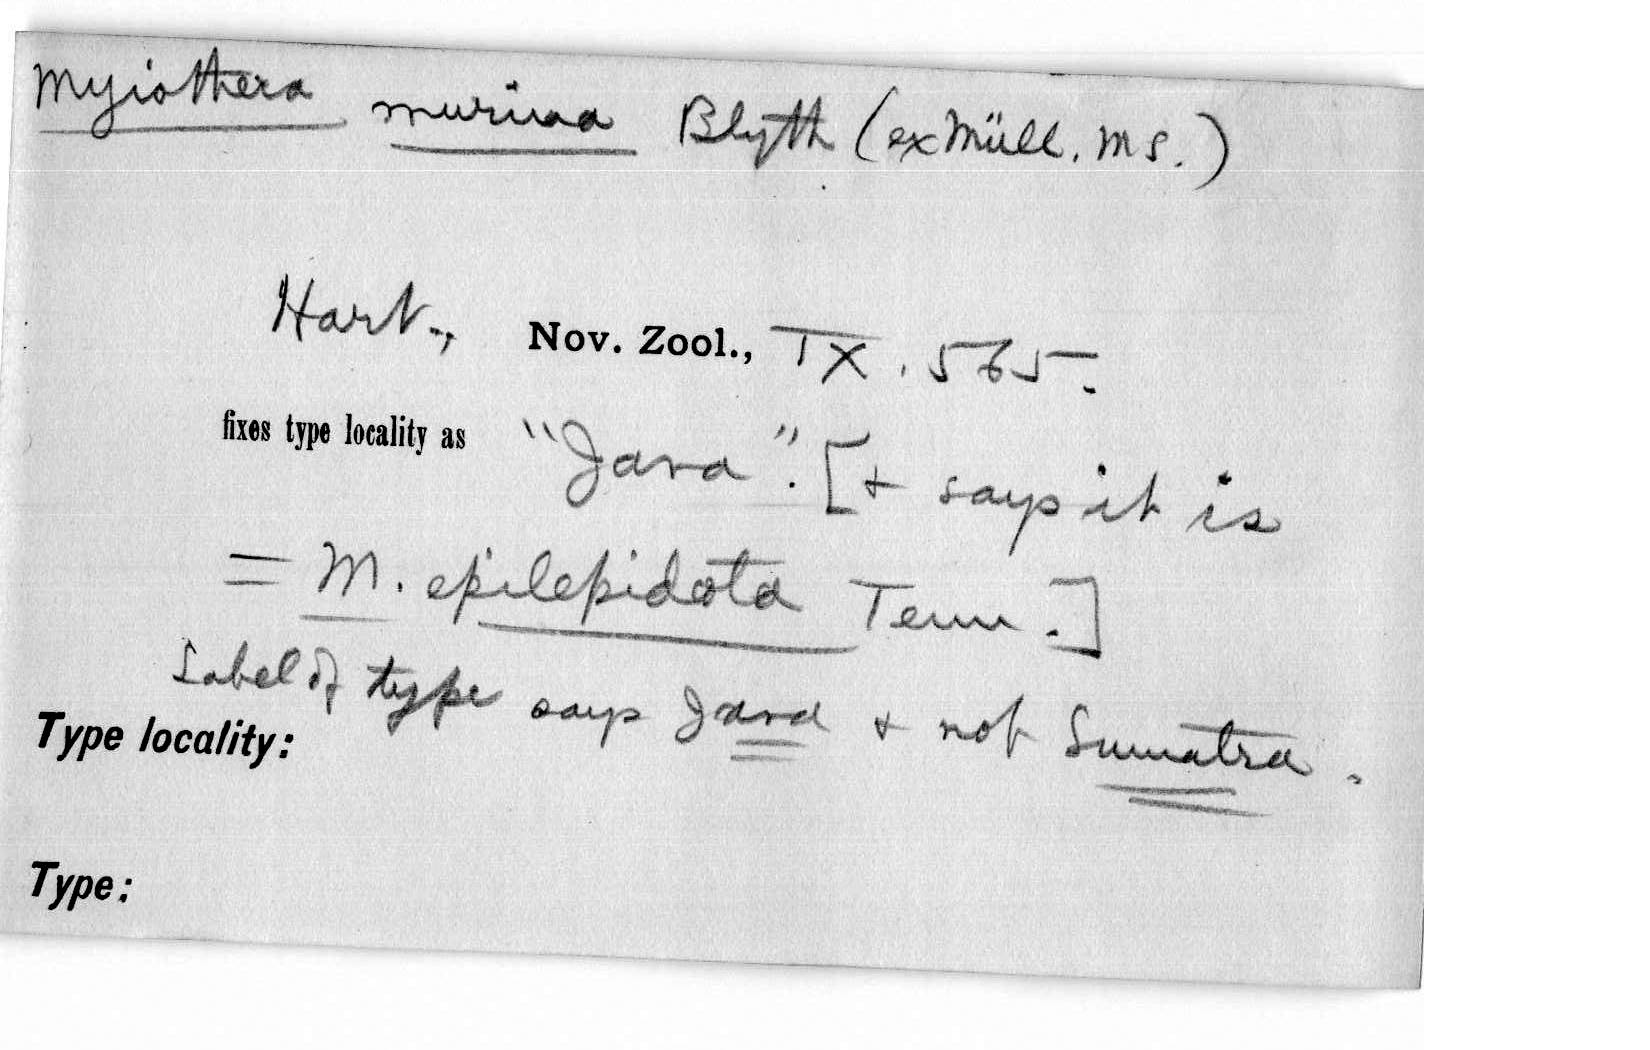 Myiothera murina Blyth (ex Müll. MS.)
Hart., Nov. Zool., IX. 565.
fixes type locality as "Java". [+ says it is
= M. epilepidota Temm.]
Label of type says Java + not Sumatra.
Type locality:
Type: